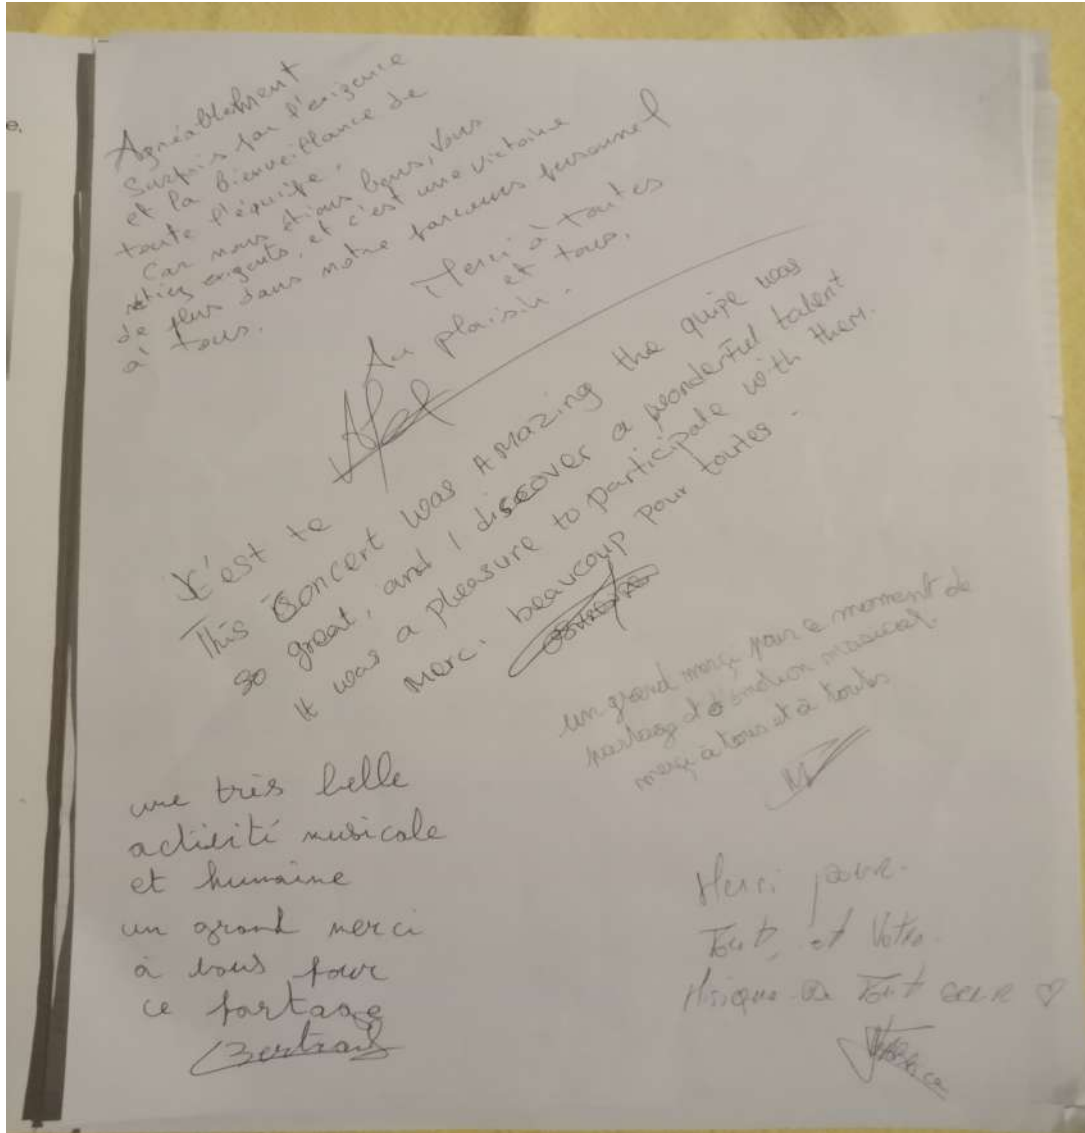 Agréablement
Surpris par l'exigence
et la bienveillance de
toute l'équipe.
Car nous étions bons, vous
étiez exigeants, et c'est une victoire
de plus dans notre parcours personnel
à tous.
Merci à toutes
et tous.
Au plaisir.
C'est te
This Concert was Amazing the quipe was
so great, and I discover a wonderful talent
It was a pleasure to participate with them.
Merci beaucoup pour toutes.
un grand merçi pour ce moment de
partage et d'émotion musical.
merçi à tous et à toutes
une très belle
activité musicale
et humaine
un grand merci
à vous pour
ce partage
Bertrand
Merci pour.
Tout, et Votre.
Misique de Tout cœur ♡